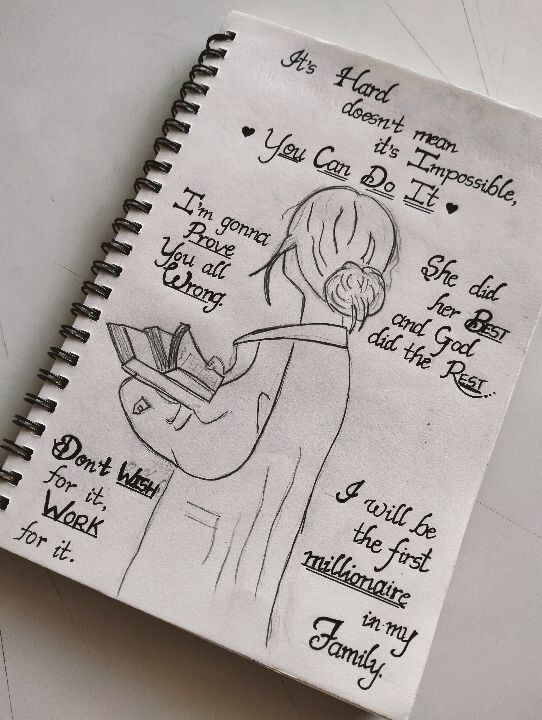 It's Hard
doesn't mean
it's Impossible,
You Can Do It
I'm gonna
Prove
You all
Wrong.
She did
her BEST
and God
did the REST..
Don't WISH
for it,
WORK
for it.
I will be
the first
millionaire
in my
Family.